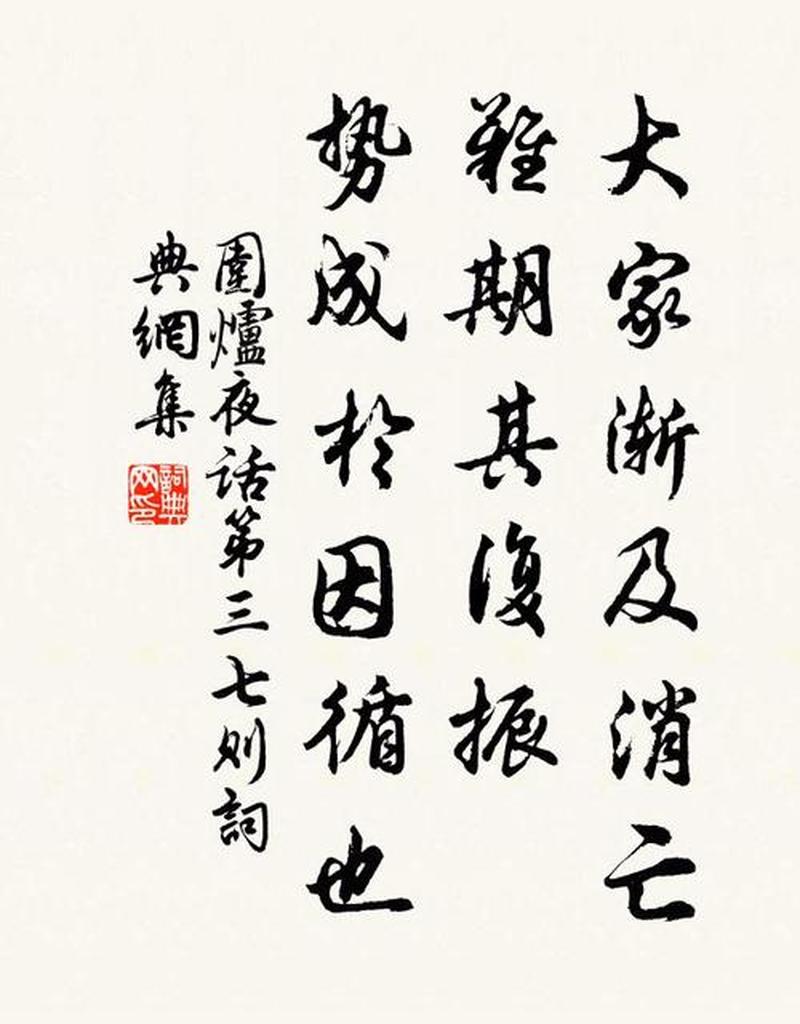 大家渐及消亡
難期其復振
势成於因循也
圍爐夜话第三七则詞
典網集
詞典网印